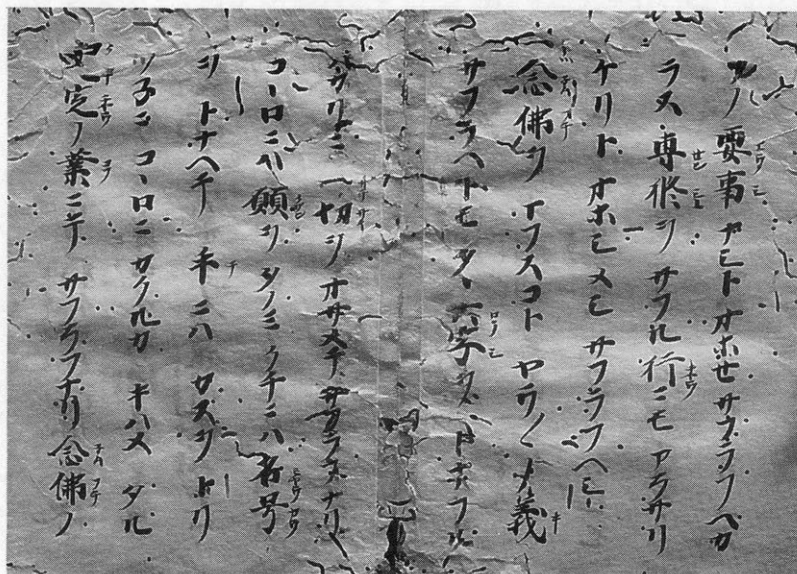 ノ 要事ナシト オホセサフラフヘカ
ラス 専修ヲ サフル行ニモ アラサリ
ケリト オホシメシ サフラフヘシ
念佛ヲ マフスコト ヤウ〱ノ義
サフラヘトモ タヽ六字ヲ トナフル
ハカリニ 一切ヲ オサメテ サフラフナリ
コヽロニハ 願ヲ タノミ クチニハ 名号
ヲ トナヘテ 手ニハ カスヲ トリ
ツ子ニ コヽロニ カクルカ キハメタル
決定ノ業ニテ サフラフナリ 念佛ノ